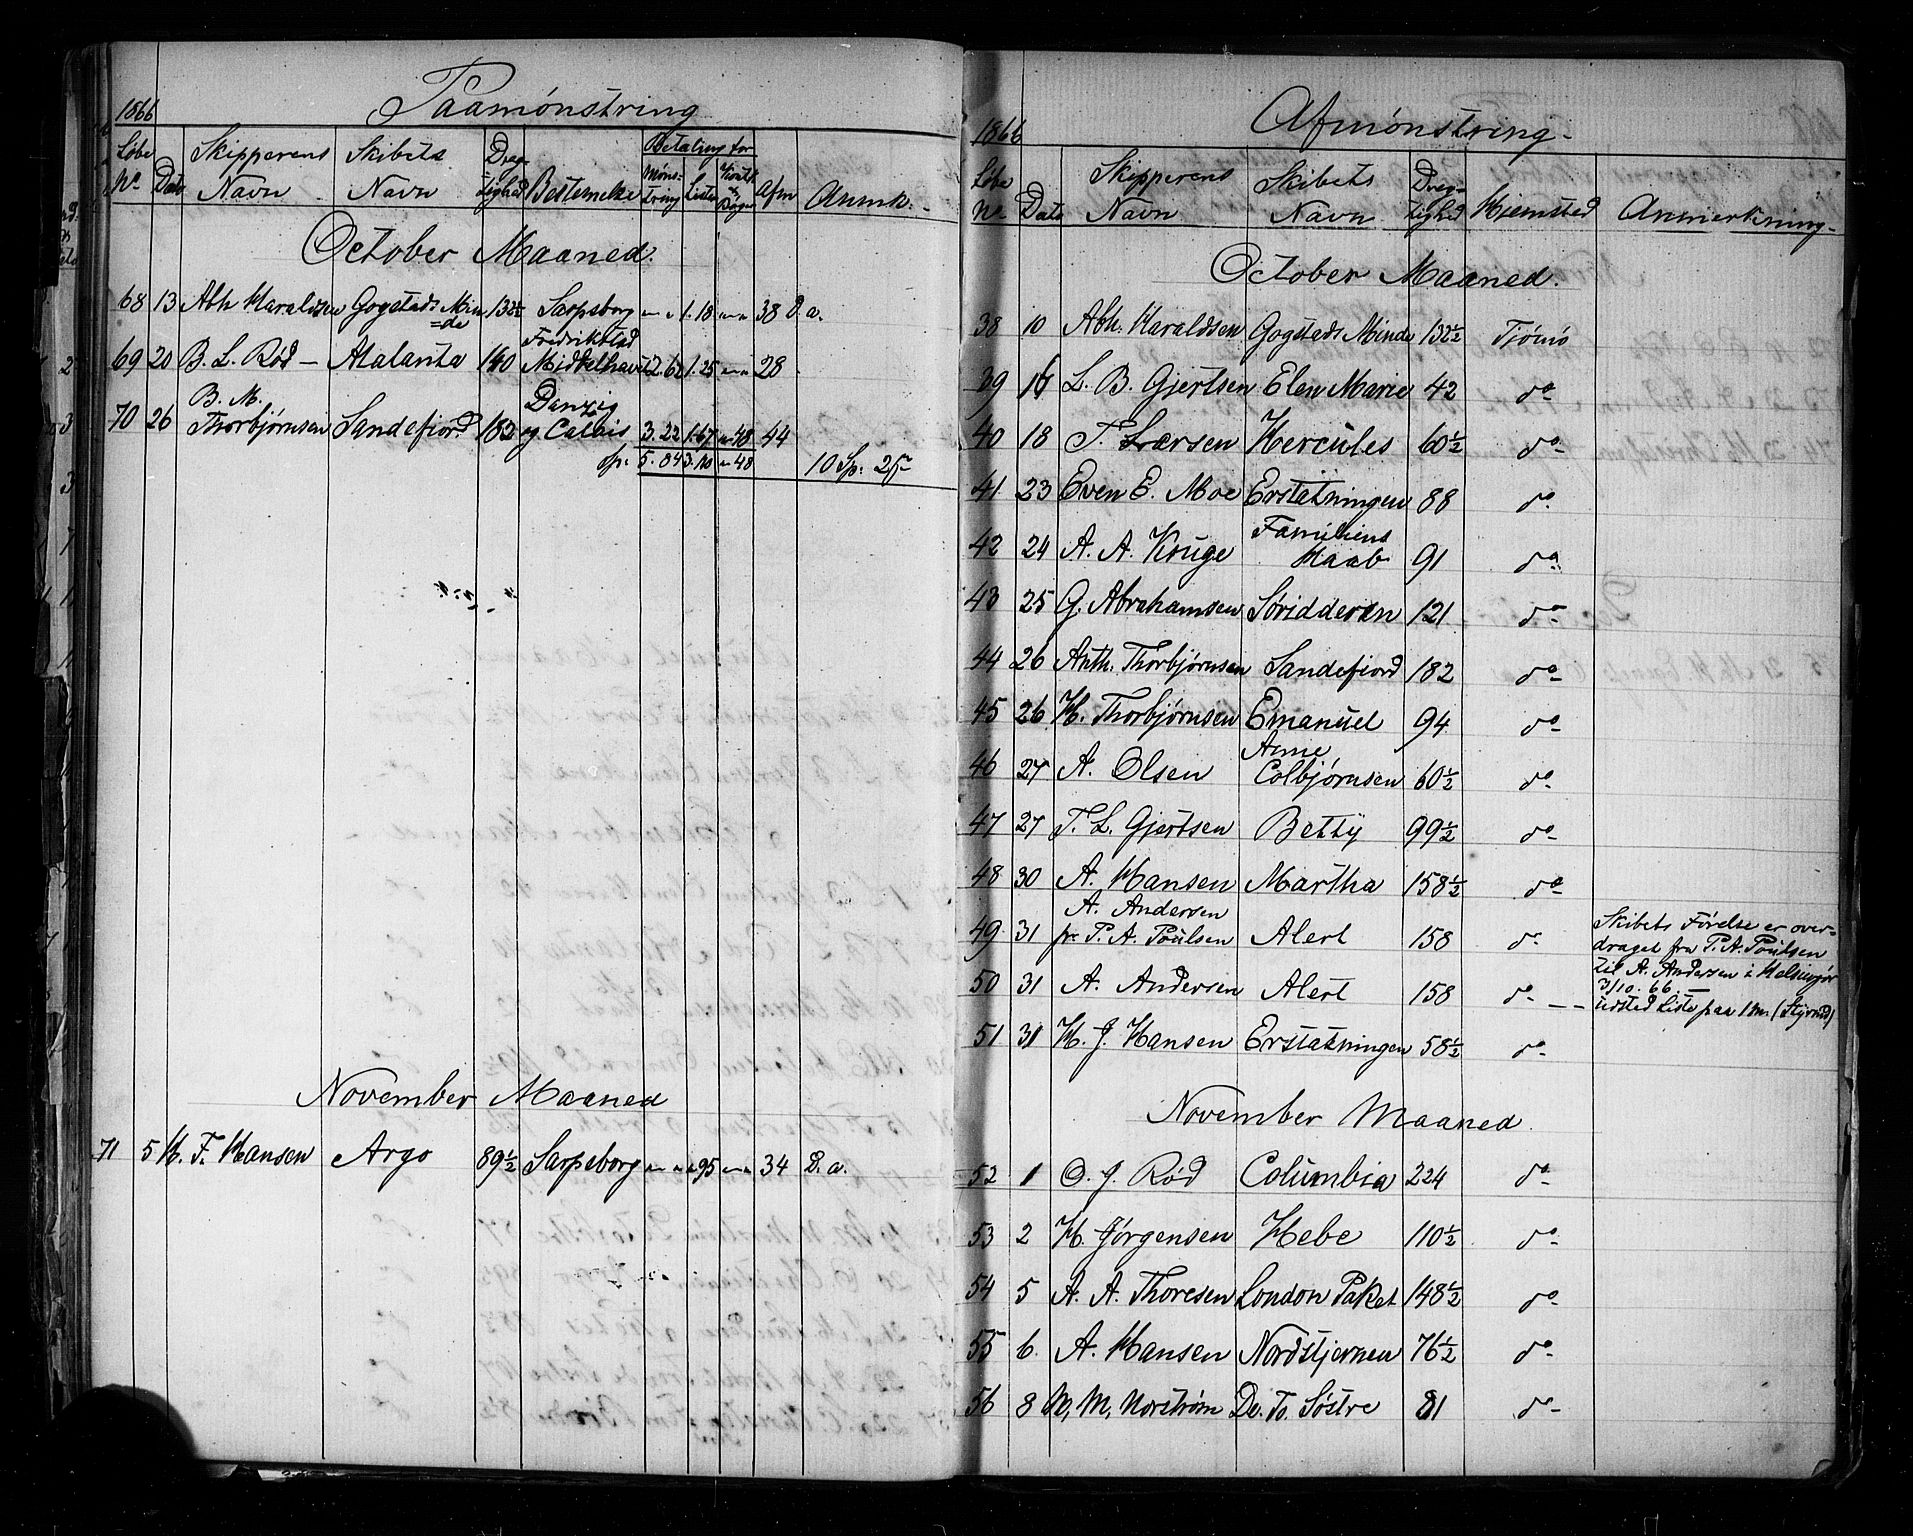 1866 Paamønstring
Løbe No Dato Skippernes Navn Skibets Navn Dræg-tighed Bestemelse Betaling for Møns-tring Lister Afm Anmk.
October Maaned.
68 13 Abh Haraldsen Gogstads Min=de 132½ Sarpsborg " " 1.18 " " 38 D. a.
69 20 B. L. Rød Atalanta 140 Fredrikstad Middelhavet 2.62 1.25 " " 28
70 26 B. M. Thorbjørnsen Sandefiord 182 Danzig og Calais 3.22 1.67 " 48 44
Sp: 5.84 3.110 " 48 10 Sp: 25
November Maaned
71 5 H. F. Hansen Argo 89½ Sarpsborg " " " 95 " " 34 D. a.
1866 Afmønstring
Løbe No Dato Skipperens Navn Skibets Navn Dræg-tighed Hjemsted Anmerkning
October Maaned.
38 10 Abh. Haraldsen Gogstads Minde 132½ Tjømø
39 16 L. B. Gjertsen Elen Marie 42 do
40 18 T. Larsen Hercules 60½ do
41 23 Even E. Moe Erstatningen 88 do
42 24 A. A. Kruge Familiens Haab 91 do
43 25 G. Abrahamsen Søridderen 121 do
44 26 Anth. Thorbjørnsen Sandefiord 182 do
45 26 H. Thorbjørnsen Emanuel 94 do
46 27 A. Olsen Anne Colbjørnsen 60½ do
47 27 T. L. Gjertsen Betty 99½ do
48 30 A. Hansen Martha 158½ do
49 31 A. Andersen pr P. A. Poulsen Alert 158 do
Skibets Førelse er over-
draget fra P. A. Poulsen
til A. Andersen i Helsingør
3/10. 66
50 31 A. Andersen Alert 158 do - - udsted Liste paa 1 m. (Styrmd)
51 31 H. J. Hansen Erstatningen 58½ do
November Maaned.
52 1 O. J. Rød Columbia 224 do
53 2 H. Jørgensen Hebe 110½ do
54 5 A. A. Thoresen London Paket 148½ do
55 6 A. Hansen Nordstjernen 76½ do
56 8 M. M. Norstrøm De. To. Søstre 81 do